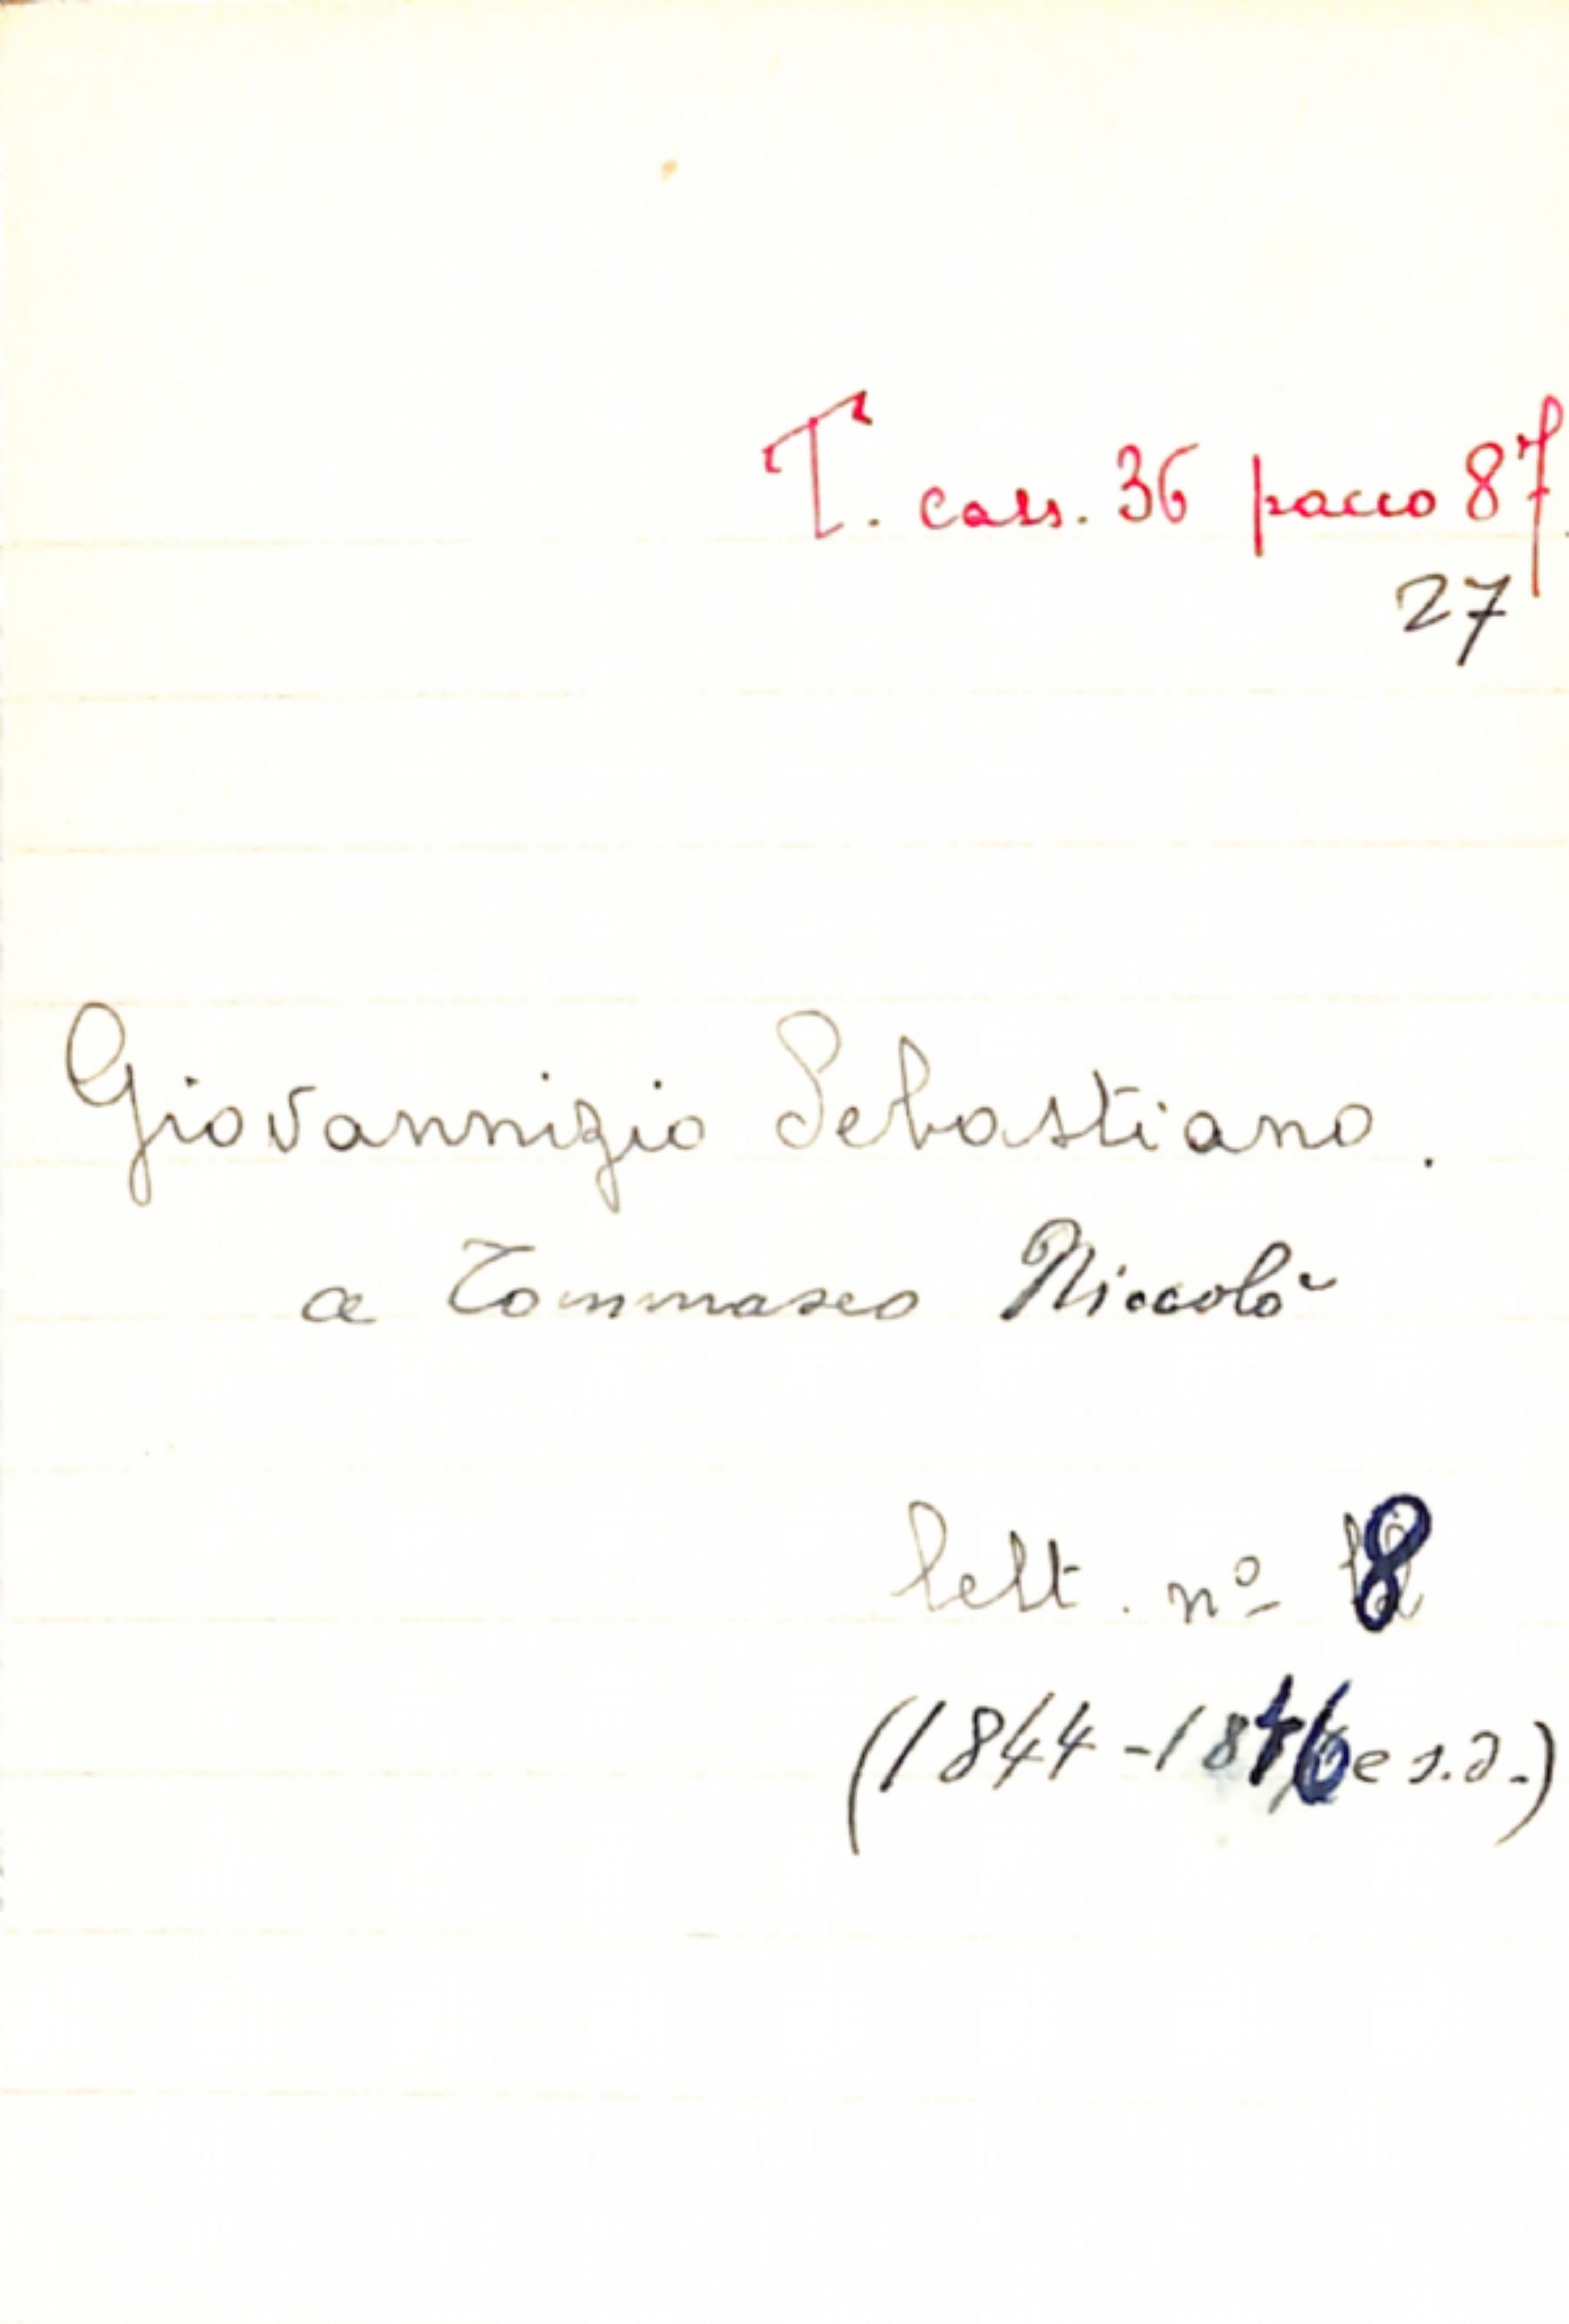 T. cass. 36 pacco 87.
27
Giovannizio Sebastiano.
a Tommaseo Niccolò
lett. nº 8
(1844-1846 e s.d.)